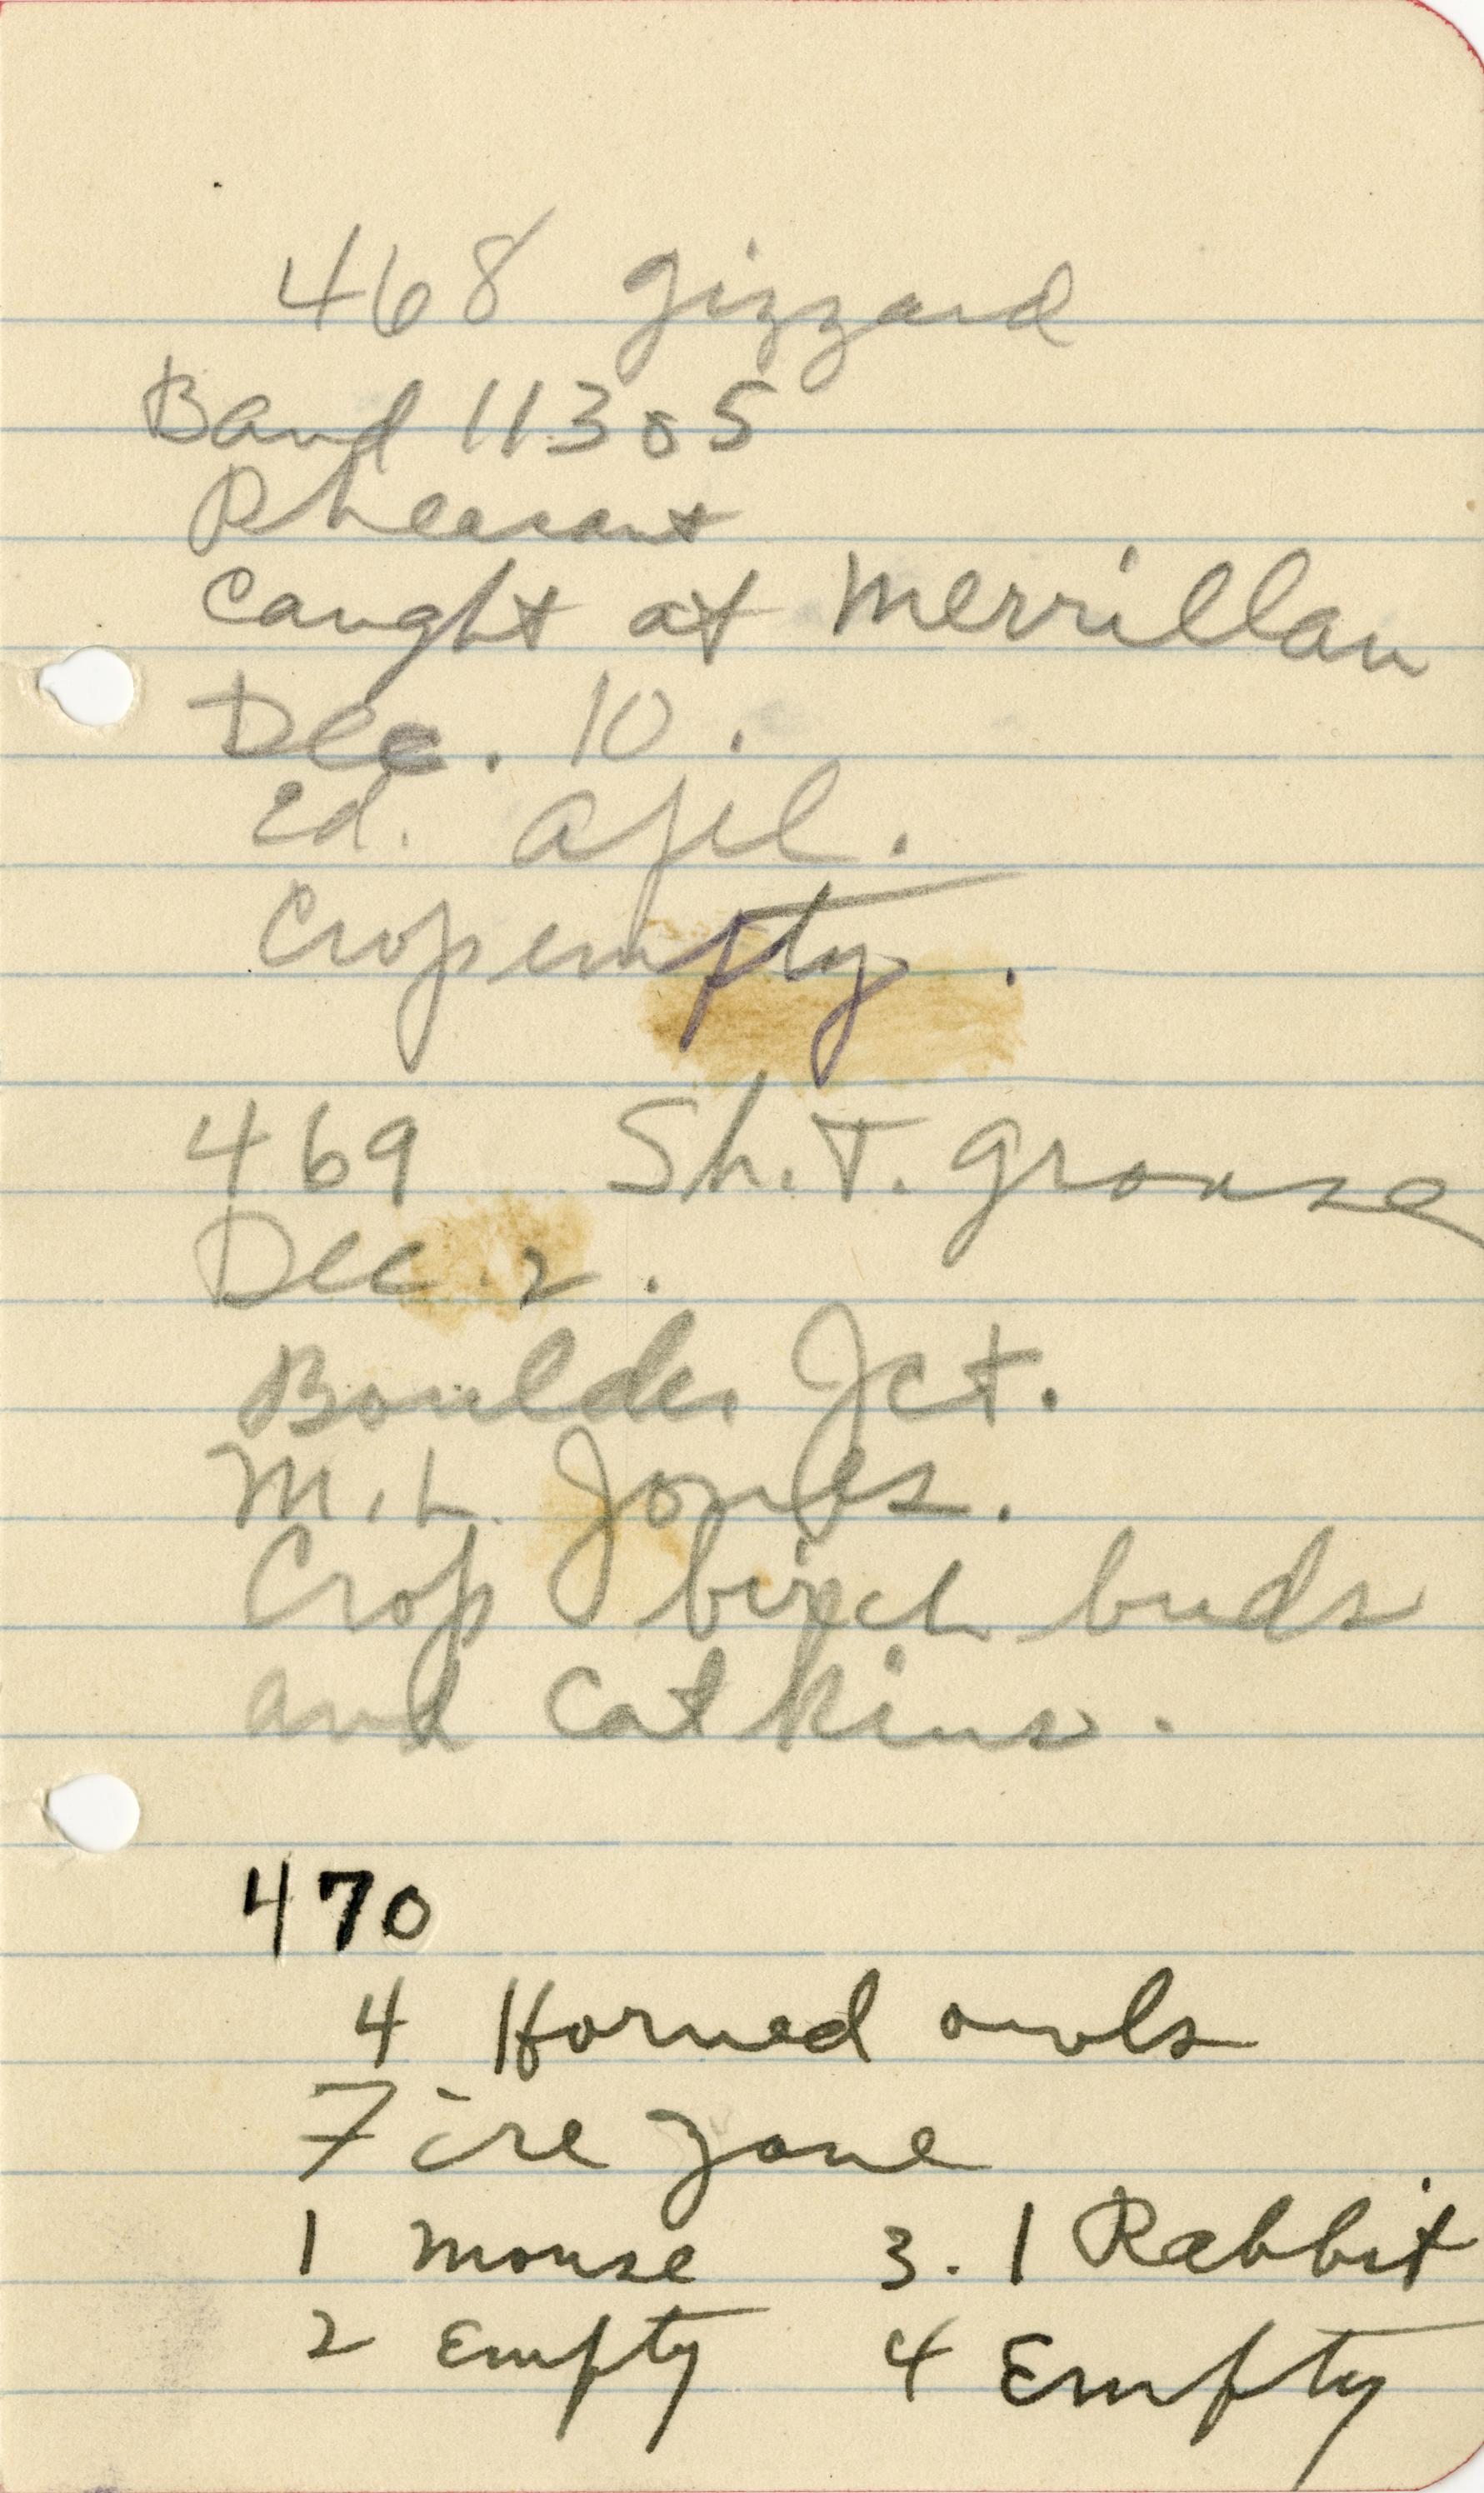 468 gizzard
Band 11305
Pheasant
Caught at Merrillan
Dec. 10.
Ed.
Crop empty.
469 Sh. T. grouse
Dec. 2.
Boulder Jct.
M. L. Jones.
Crop birch buds
and catkins.
470
4 Horned owls
Fire zone
1 mouse 3. 1 Rabbit
2 Empty 4 Empty